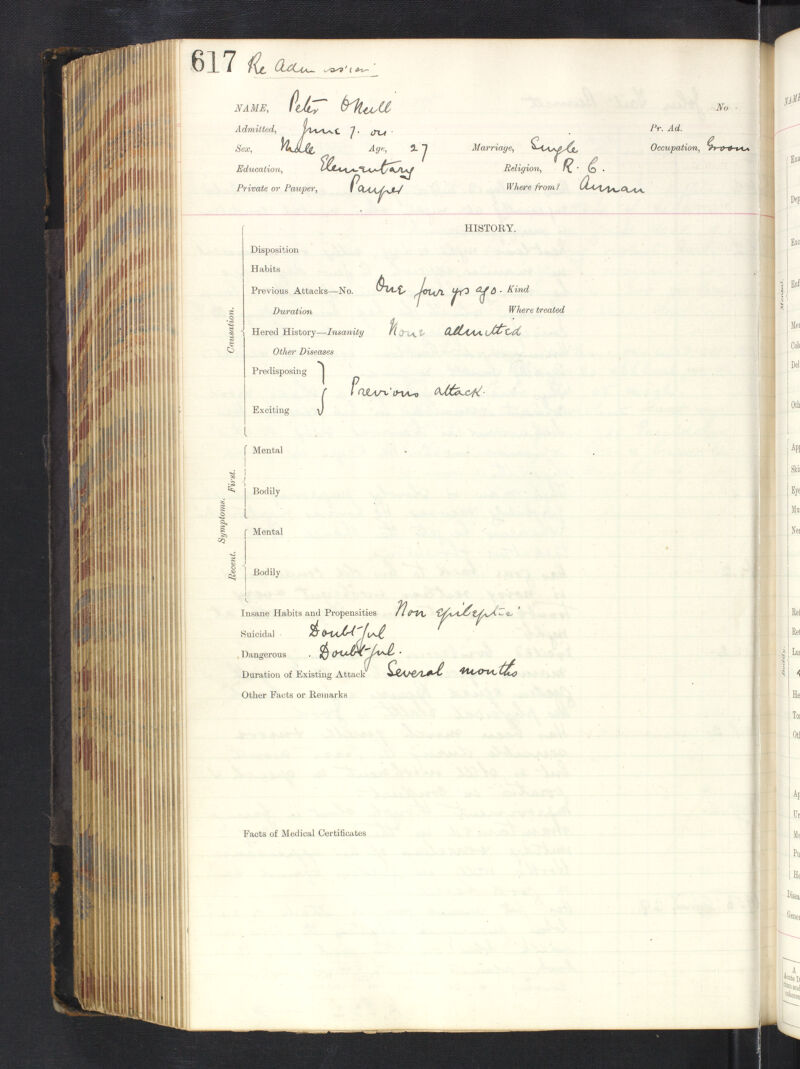 617 Re Admission
NAME, Peter O'Neill No
Admitted, June 7. 01. Pr. Ad.
Sex, Male Age, 27 Marriage, Single Occupation, Groom
Education, Elementary Religion, R. C.
Private or Pauper, Pauper Where from? Annan
HISTORY.
Causation.
Disposition
Habits
Previous Attacks—No. One four yrs ago. Kind
Duration Where treated
Hered History—Insanity None admitted
Other Diseases
Predisposing
Previous attack.
Exciting
Symptoms.
First.
Mental
Bodily
Recent.
Mental
Bodily
Insane Habits and Propensities Non epileptic
Suicidal Doubtful
Dangerous Doubtful.
Duration of Existing Attack Several months
Other Facts or Remarks
Facts of Medical Certificates